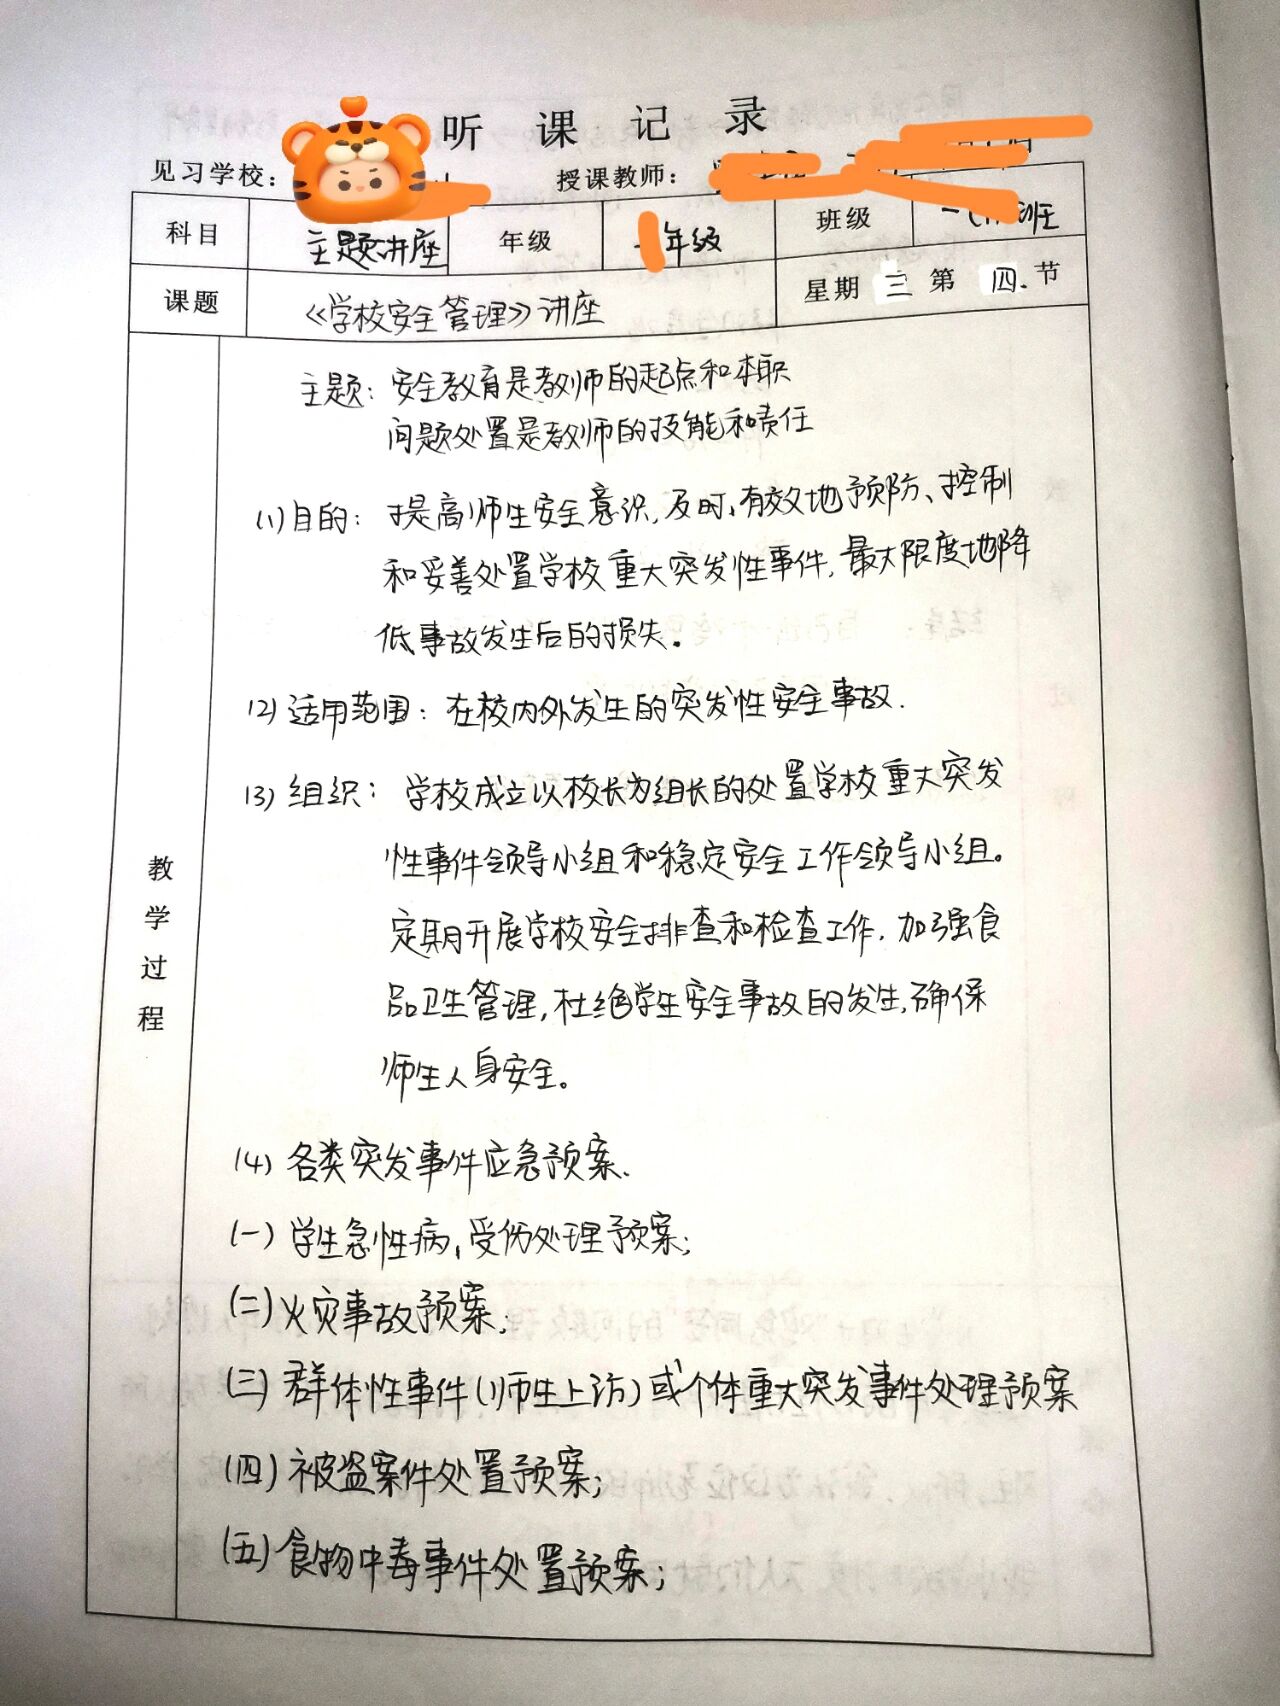 听课记录
见习学校： 授课教师：
科目 主题讲座 年级 年级 班级 班
课题 《学校安全管理》讲座 星期 三 第 四 节
教学过程
主题：安全教育是教师的起点和本职
问题处置是教师的技能和责任
(1)目的：提高师生安全意识,及时,有效地预防、控制
和妥善处置学校重大突发性事件,最大限度地降
低事故发生后的损失。
(2)适用范围：在校内外发生的突发性安全事故.
(3)组织：学校成立以校长为组长的处置学校重大突发
性事件领导小组和稳定安全工作领导小组。
定期开展学校安全排查和检查工作,加强食
品卫生管理,杜绝学生安全事故的发生,确保
师生人身安全。
(4)各类突发事件应急预案、
(一)学生急性病,受伤处理预案;
(二)火灾事故预案;
(三)群体性事件(师生上访)或个体重大突发事件处理预案
(四)被盗案件处置预案;
(五)食物中毒事件处置预案;